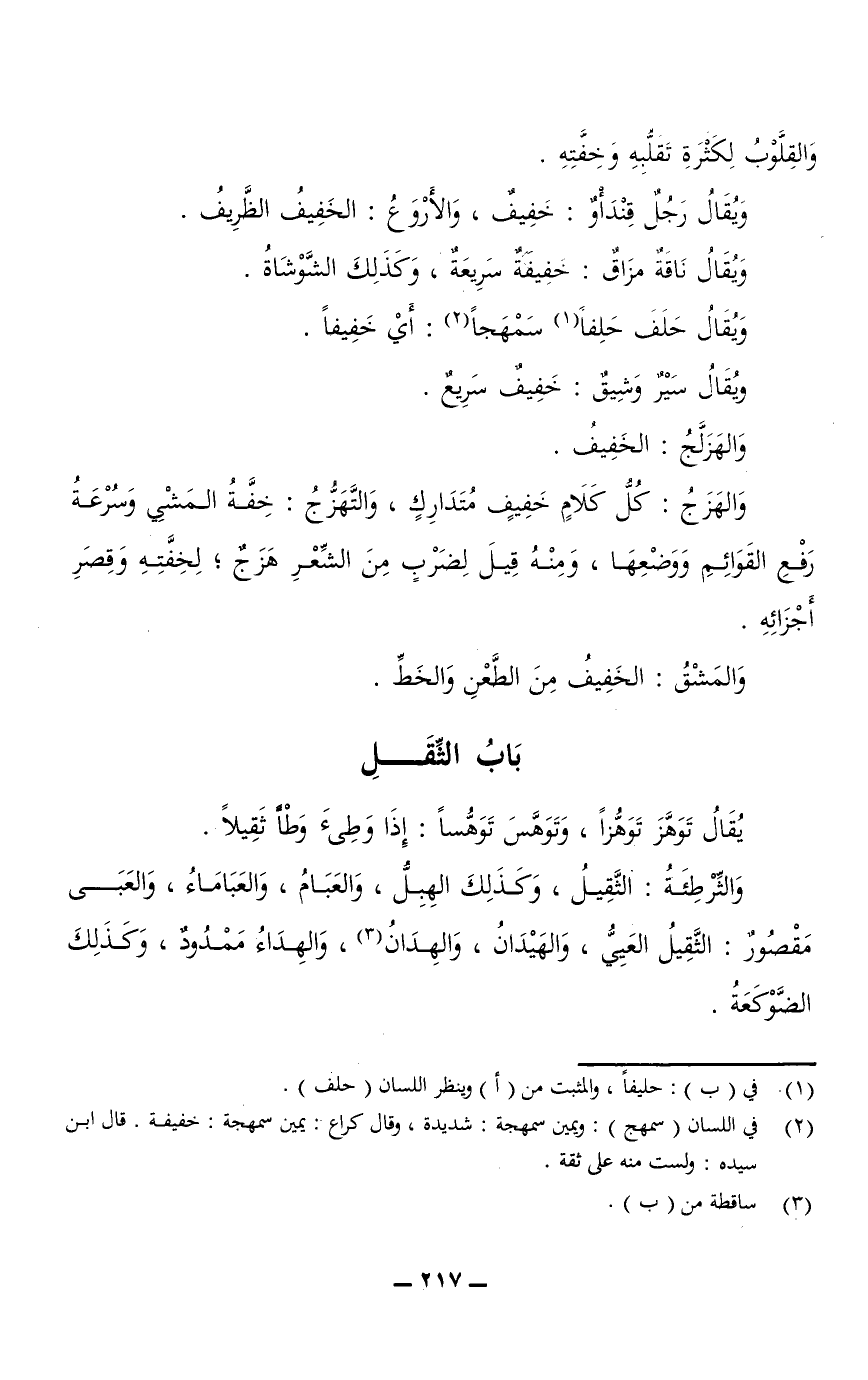 وَالقِلَّوْبُ لِكَثْرَةِ تَقَلُّبِهِ وَخِفَّتِهِ .
وَيُقَالُ رَجُلٌ قِنْدَأْوٌ : خَفِيفٌ ، وَالأَرْوَعُ : الخَفِيفُ الظَّرِيفُ .
وَيُقَالُ نَاقَةٌ مزَاقٌ : خَفِيفَةٌ سَرِيعَةٌ ، وَكَذَلِكَ الشَّوْشَاةُ .
وَيُقَالُ حَلَفَ حَلِفاً(١) سَمْهَجاً(٢) : أَيْ خَفِيفاً .
ويُقَالُ سَيْرٌ وَشِيقٌ : خَفِيفٌ سَرِيعٌ .
وَالهَزَلَّجُ : الخَفِيفُ .
وَالهَزَجُ : كُلُّ كَلَامٍ خَفِيفٍ مُتَدَارِكٍ ، وَالتَّهَزُّجُ : خِفَّةُ المَشْيِ وَسُرْعَةُ
رَفْعِ القَوَائِمِ وَوَضْعِهَا ، وَمِنْهُ قِيلَ لِضَرْبٍ مِنَ الشِّعْرِ هَزَجٌ ؛ لِخِفَّتِهِ وَقِصَرِ
أَجْزَائِهِ .
وَالمَشْقُ : الخَفِيفُ مِنَ الطَّعْنِ وَالخَطِّ .
بَابُ الثِّقَلِ
يُقَالُ تَوَهَّزَ تَوَهُّزاً ، وَتَوَهَّسَ تَوَهُّساً : إِذَا وَطِىءَ وَطْأً ثَقِيلاً .
وَالثِّرْطِئَةُ : الثَّقِيلُ ، وَكَذَلِكَ الهِبِلُّ ، وَالعَبَامُ ، وَالعَبَامَاءُ ، وَالعَبَى
مَقْصُورٌ : الثَّقِيلُ العَيِيُّ ، وَالهَيْدَانُ ، وَالهِدَانُ(٣) ، وَالهِدَاءُ مَمْدُودٌ ، وَكَذَلِكَ
الضَّوْكَعَةُ .
(١) في ( ب ) : حليفاً ، والمثبت من ( أ ) وينظر اللسان ( حلف ) .
(٢) في اللسان ( سمهج ) : ويمين سمهجة : شديدة ، وقال كراع : يمين سمهجة : خفيفة . قال ابن
سيده : ولست منه على ثقة .
(٣) ساقطة من ( ب ) .
ـ ٢١٧ ـ